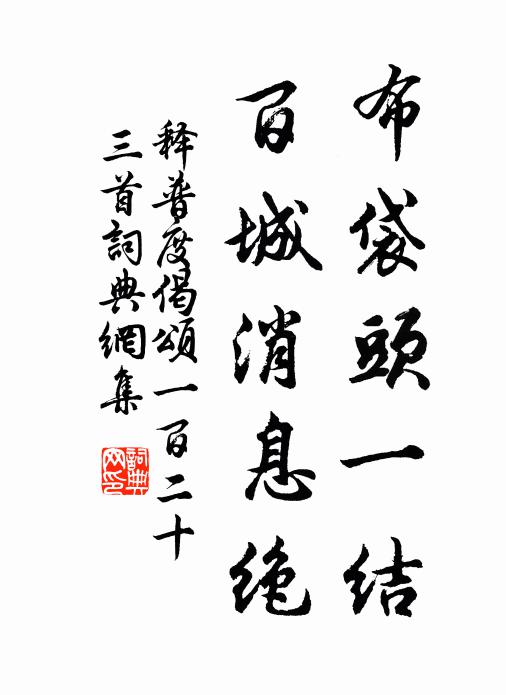 布袋頭一结
百城消息绝
释普度偈頌一百二十
三首詞典網集
詞典网印